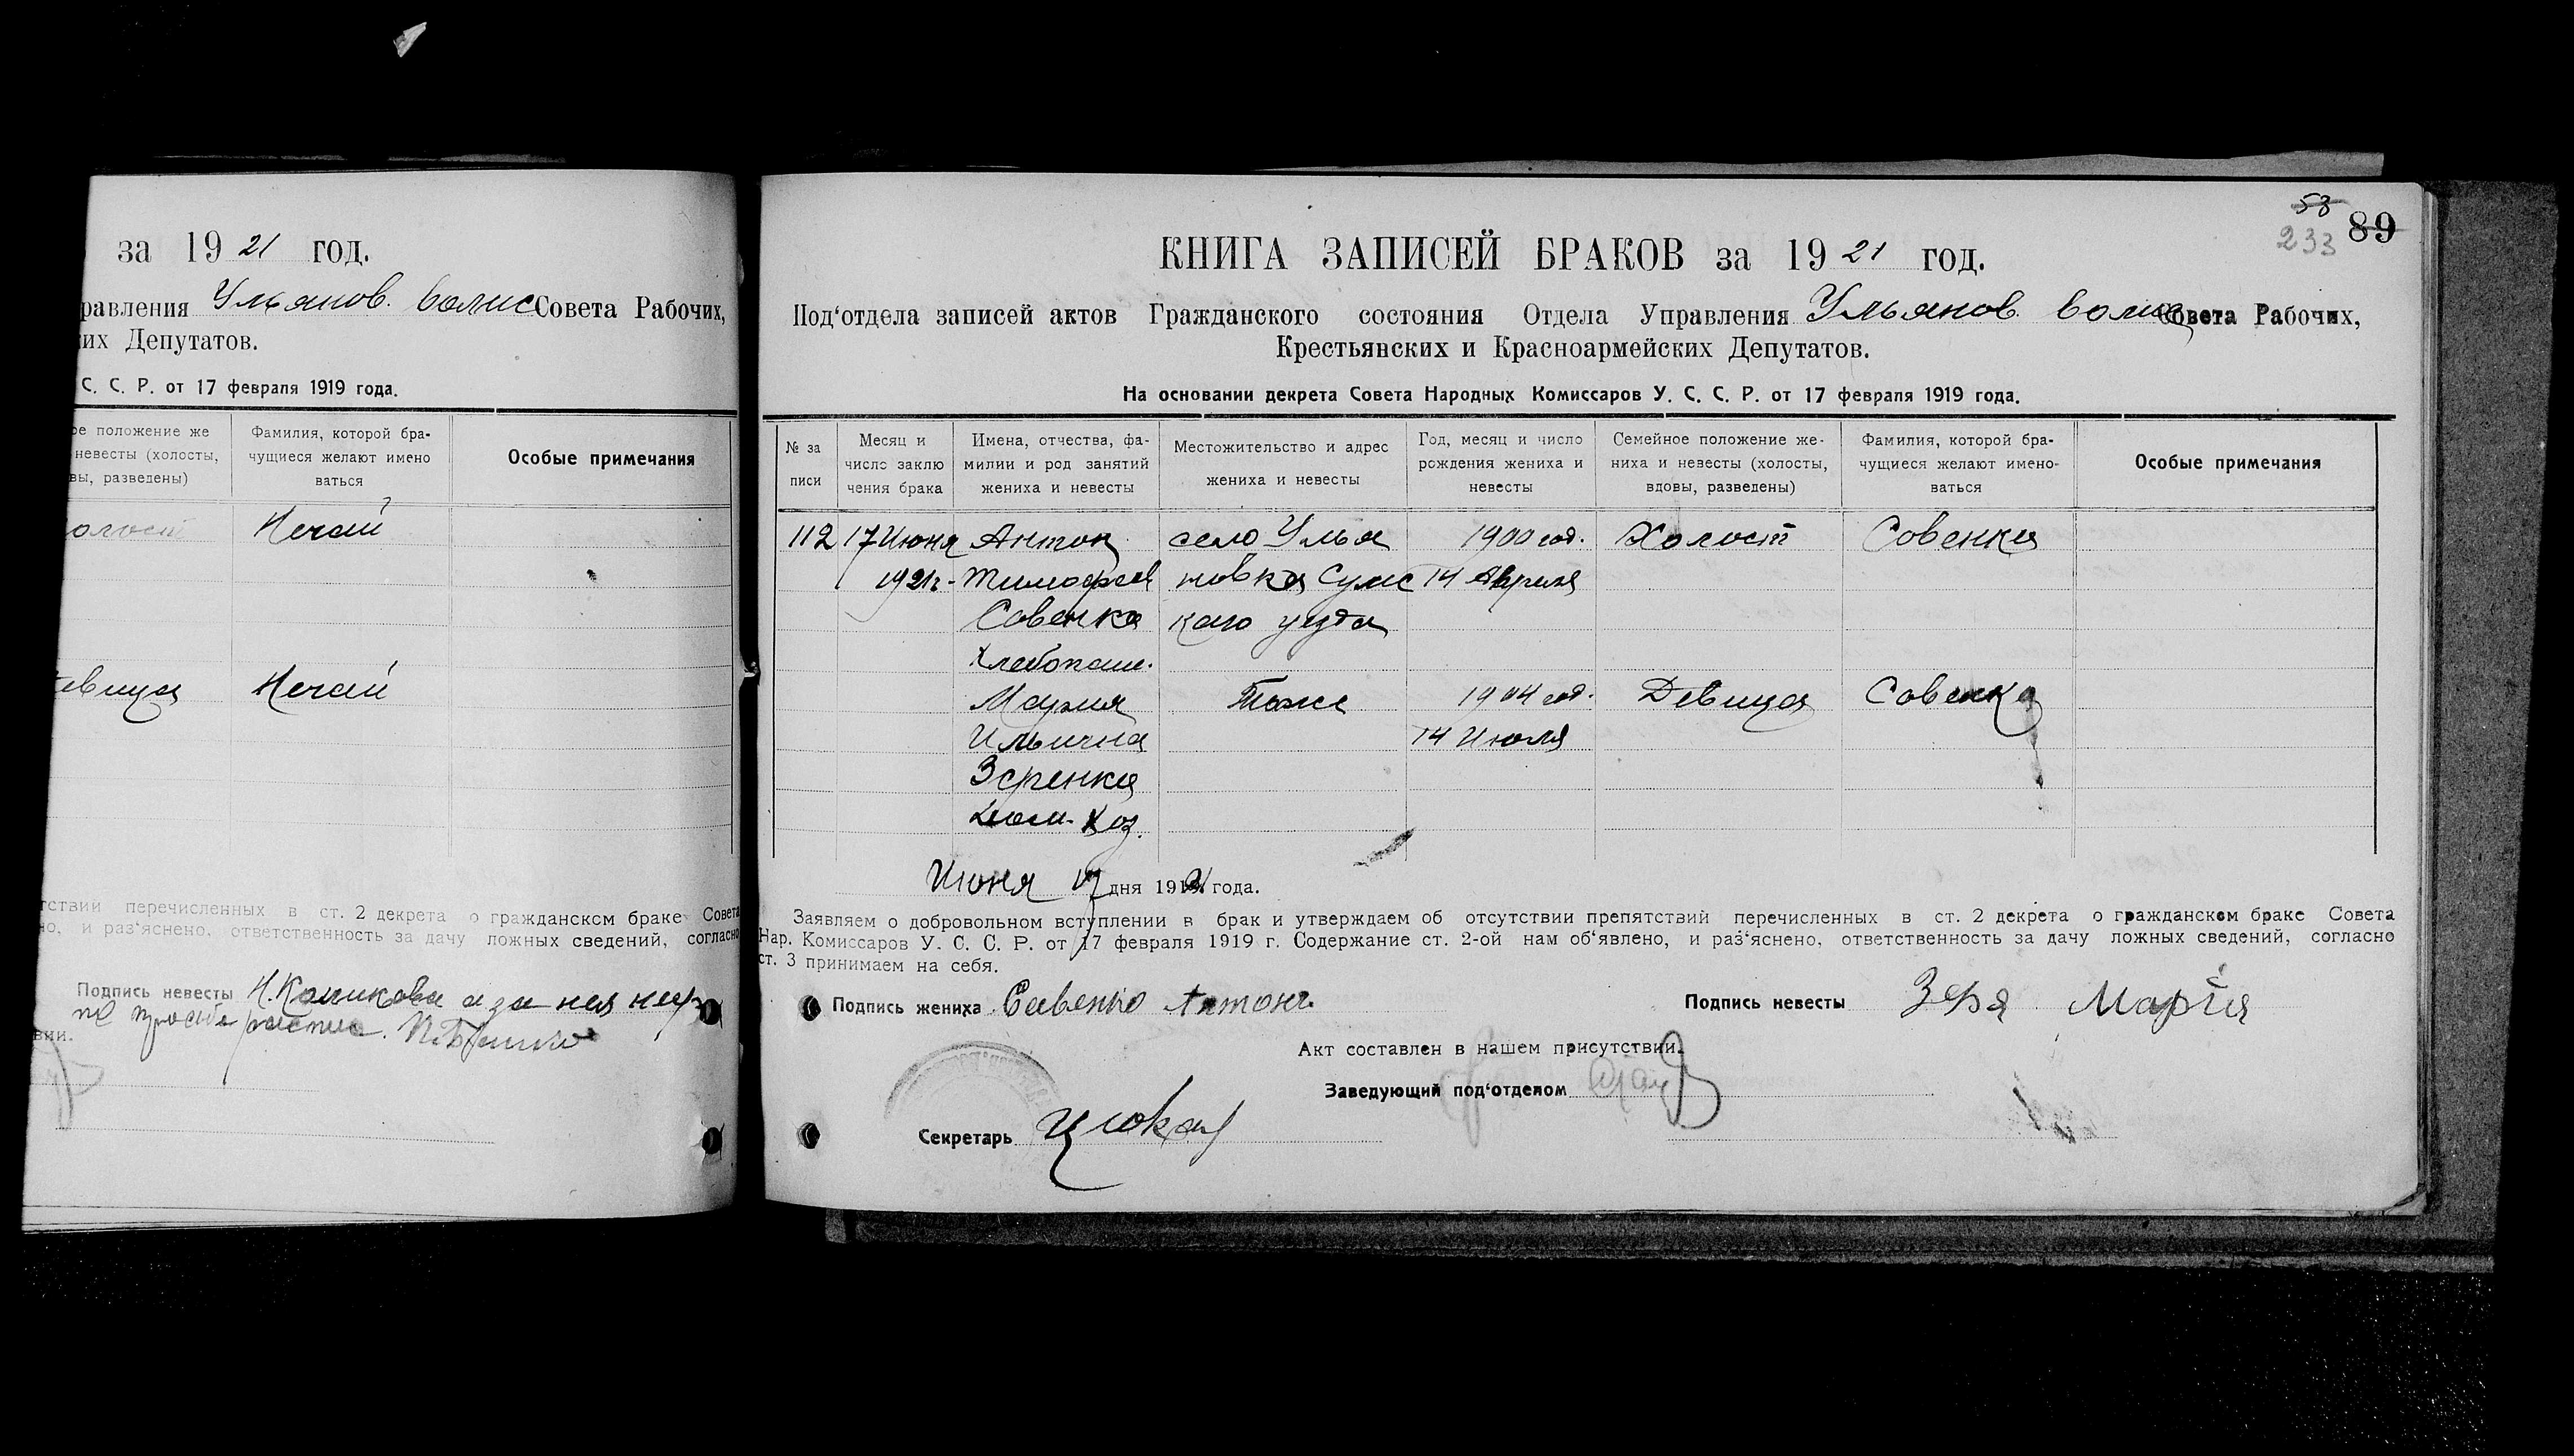 за 1921 год.
равления Ульянов. волис Совета Рабочих,
их Депутатов.
С. С. Р. от 17 февраля 1919 года.
ое положение же
невесты (холосты,
вы, разведены)
Фамилия, которой бра-
чущиеся желают имено
ваться
Особые примечания
олост Нечай
евица Нечай
тствии перечисленных в ст. 2 декрета о гражданском браке Совета
но, и раз'яснено, ответственность за дачу ложных сведений, согласно
Подпись невесты Н. Коликова а за нея негр
по просьбе
вии.
58
233 89
КНИГА ЗАПИСЕЙ БРАКОВ за 1921 год.
Под'отдела записей актов Гражданского состояния Отдела Управления Ульянов. волис Совета Рабочих,
Крестьянских и Красноармейских Депутатов.
На основании декрета Совета Народных Комиссаров У. С. С. Р. от 17 февраля 1919 года.
№ за
писи
Месяц и
число заклю
чения брака
Имена, отчества, фа-
милии и род занятий
жениха и невесты
Местожительство и адрес
жениха и невесты
Год, месяц и число
рождения жениха и
невесты
Семейное положение же-
ниха и невесты (холосты,
вдовы, разведены)
Фамилия, которой бра-
чущиеся желают имено-
ваться
Особые примечания
112 17 Июня Антон село Улья 1900 год. Холост Совенко
1921г. Тимофеев новка Сумс 14 Апреля
Совенко каго уезда
хлебопаш.
Мария Тоже 1904 год. Девица Совенко
Ильична 14 Июля
Зеренко
дом. хоз.
Июня 17 дня 1921 года.
Заявляем о добровольном вступлении в брак и утверждаем об отсутствии препятствий перечисленных в ст. 2 декрета о гражданском браке Совета
Нар. Комиссаров У. С. С. Р. от 17 февраля 1919 г. Содержание ст. 2-ой нам об'явлено, и раз'яснено, ответственность за дачу ложных сведений, согласно
ст. 3 принимаем на себя.
Подпись жениха Савенко Антонъ Подпись невесты Зеря Марія
Акт составлен в нашем присутствии.
Заведующий под'отделом
Секретарь